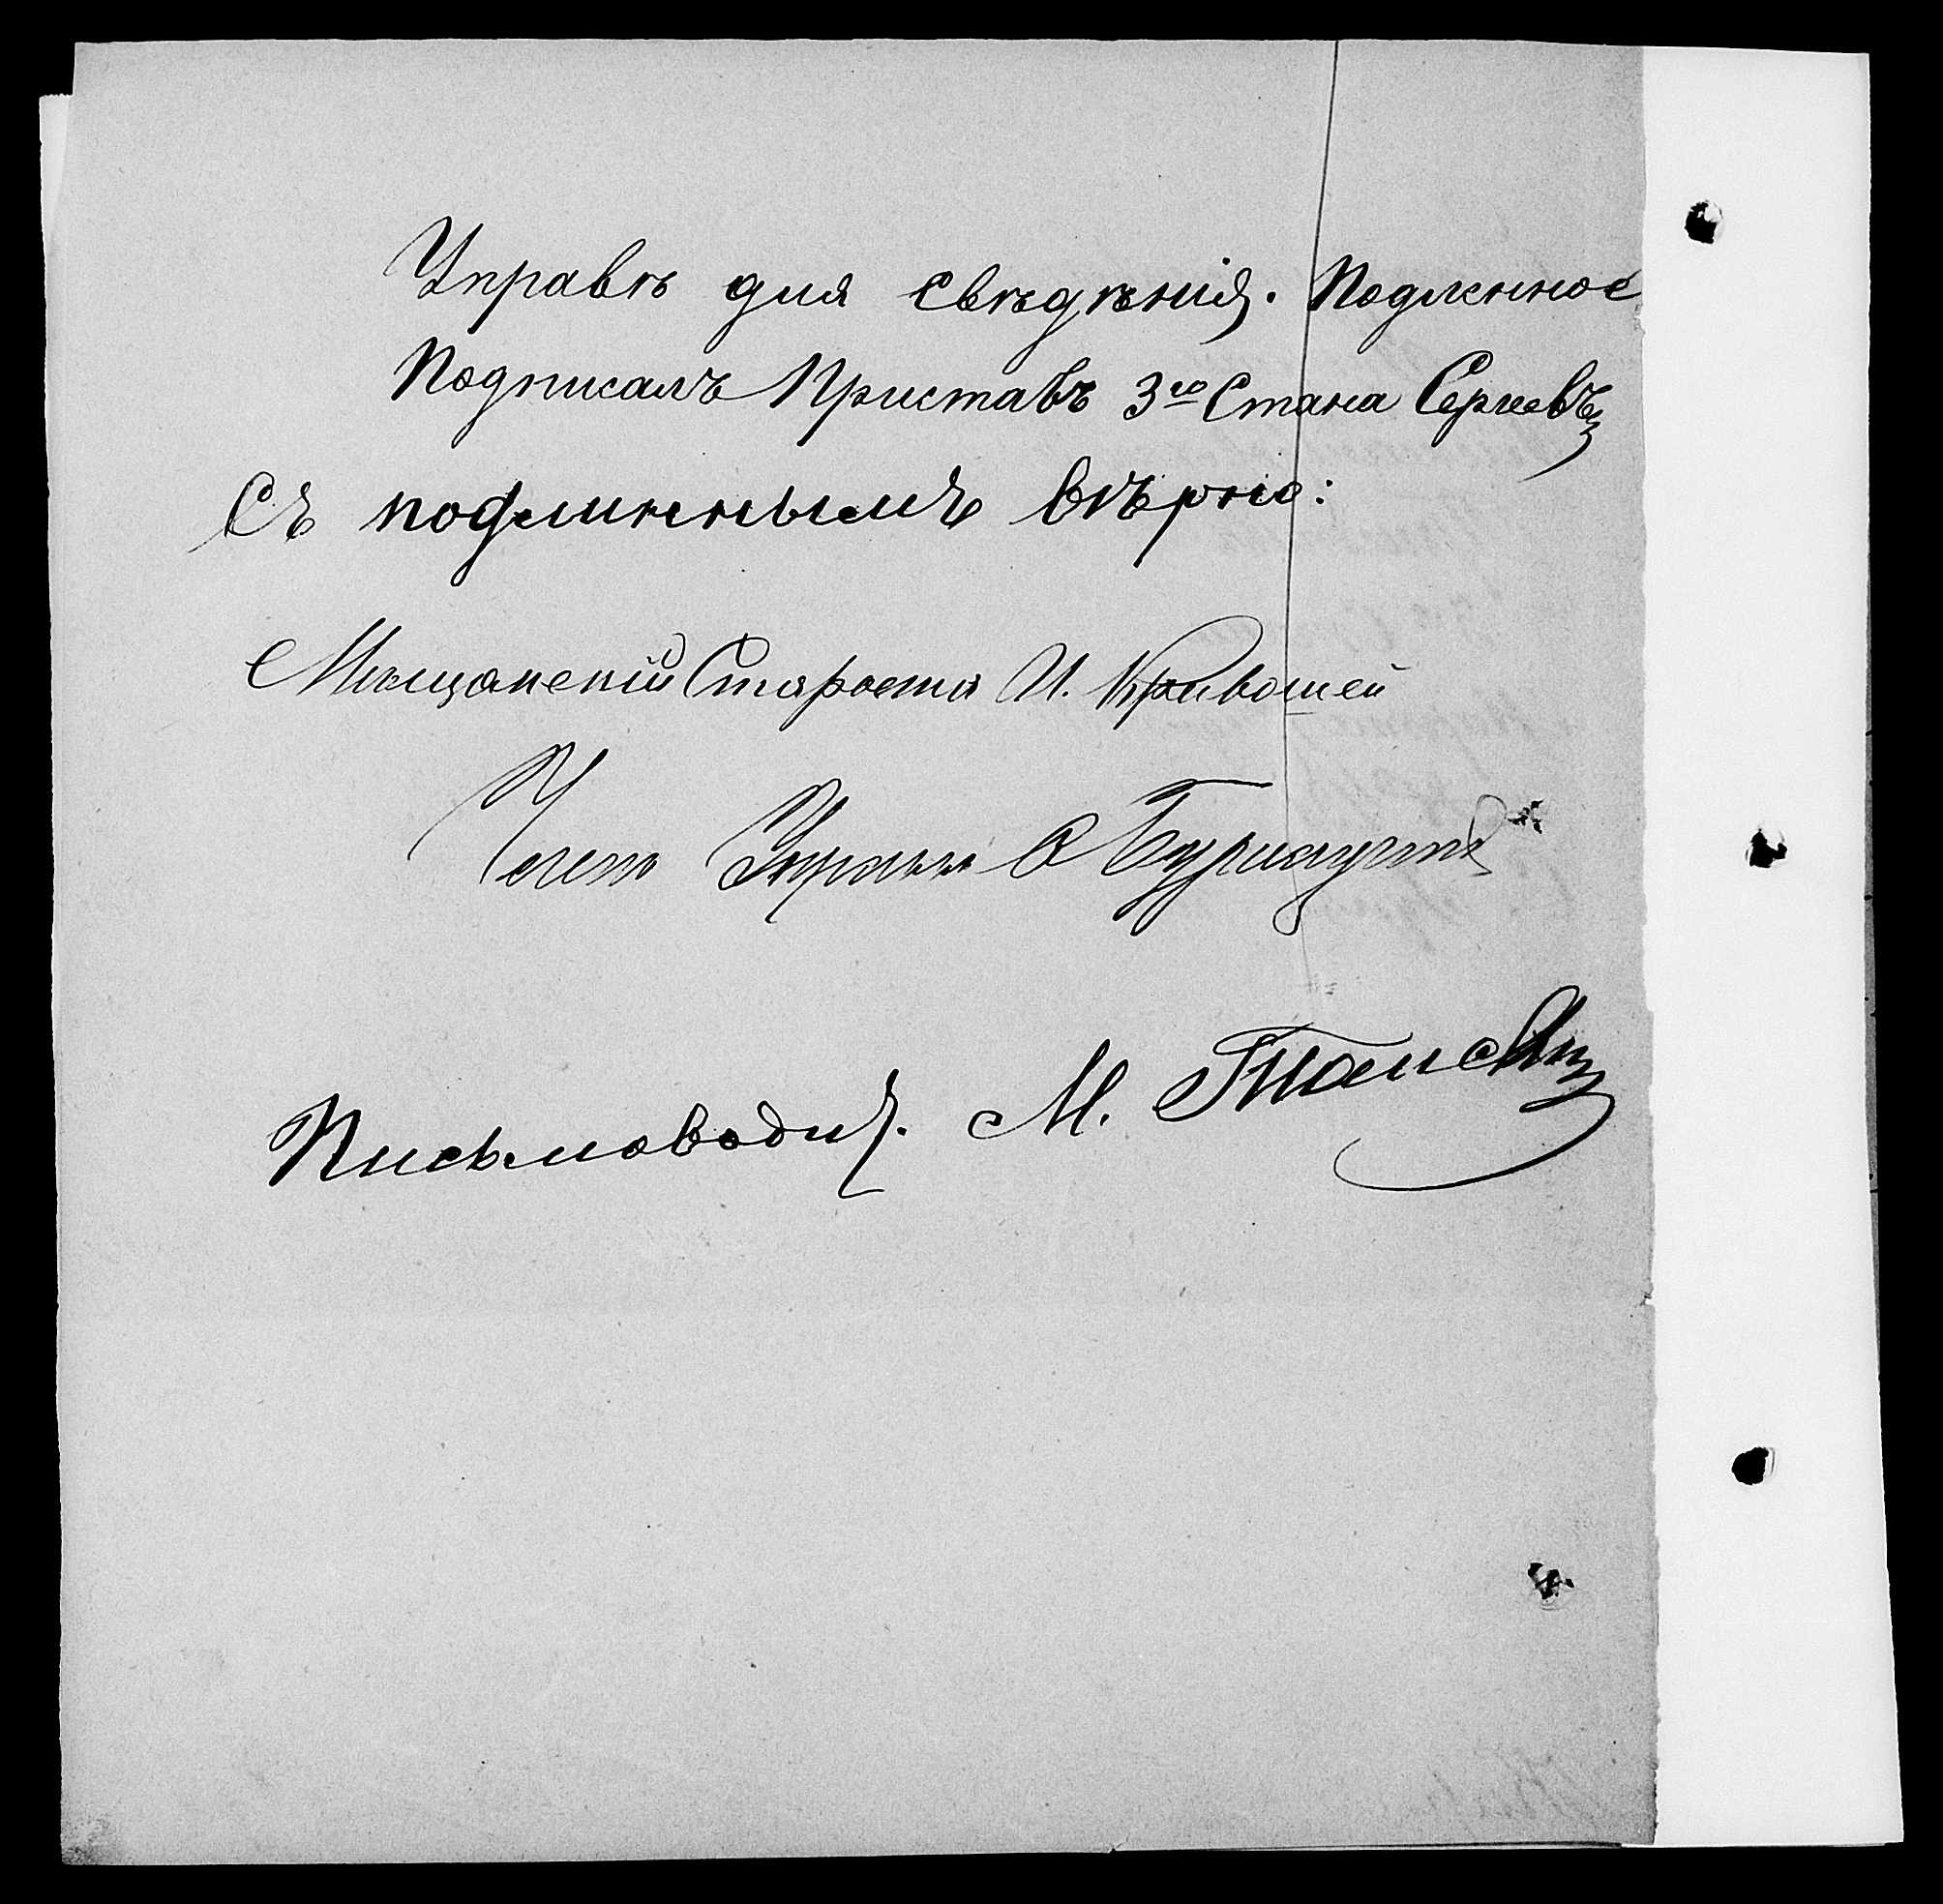 Управѣ для свѣдѣнія. Подленное
Подписалъ Приставъ 3го Стана Сергеевъ
Съ подлиннымъ вѣрно:
Мѣщанскій Староста И. Кривошей
Члены Управы
Письмоводит. М.